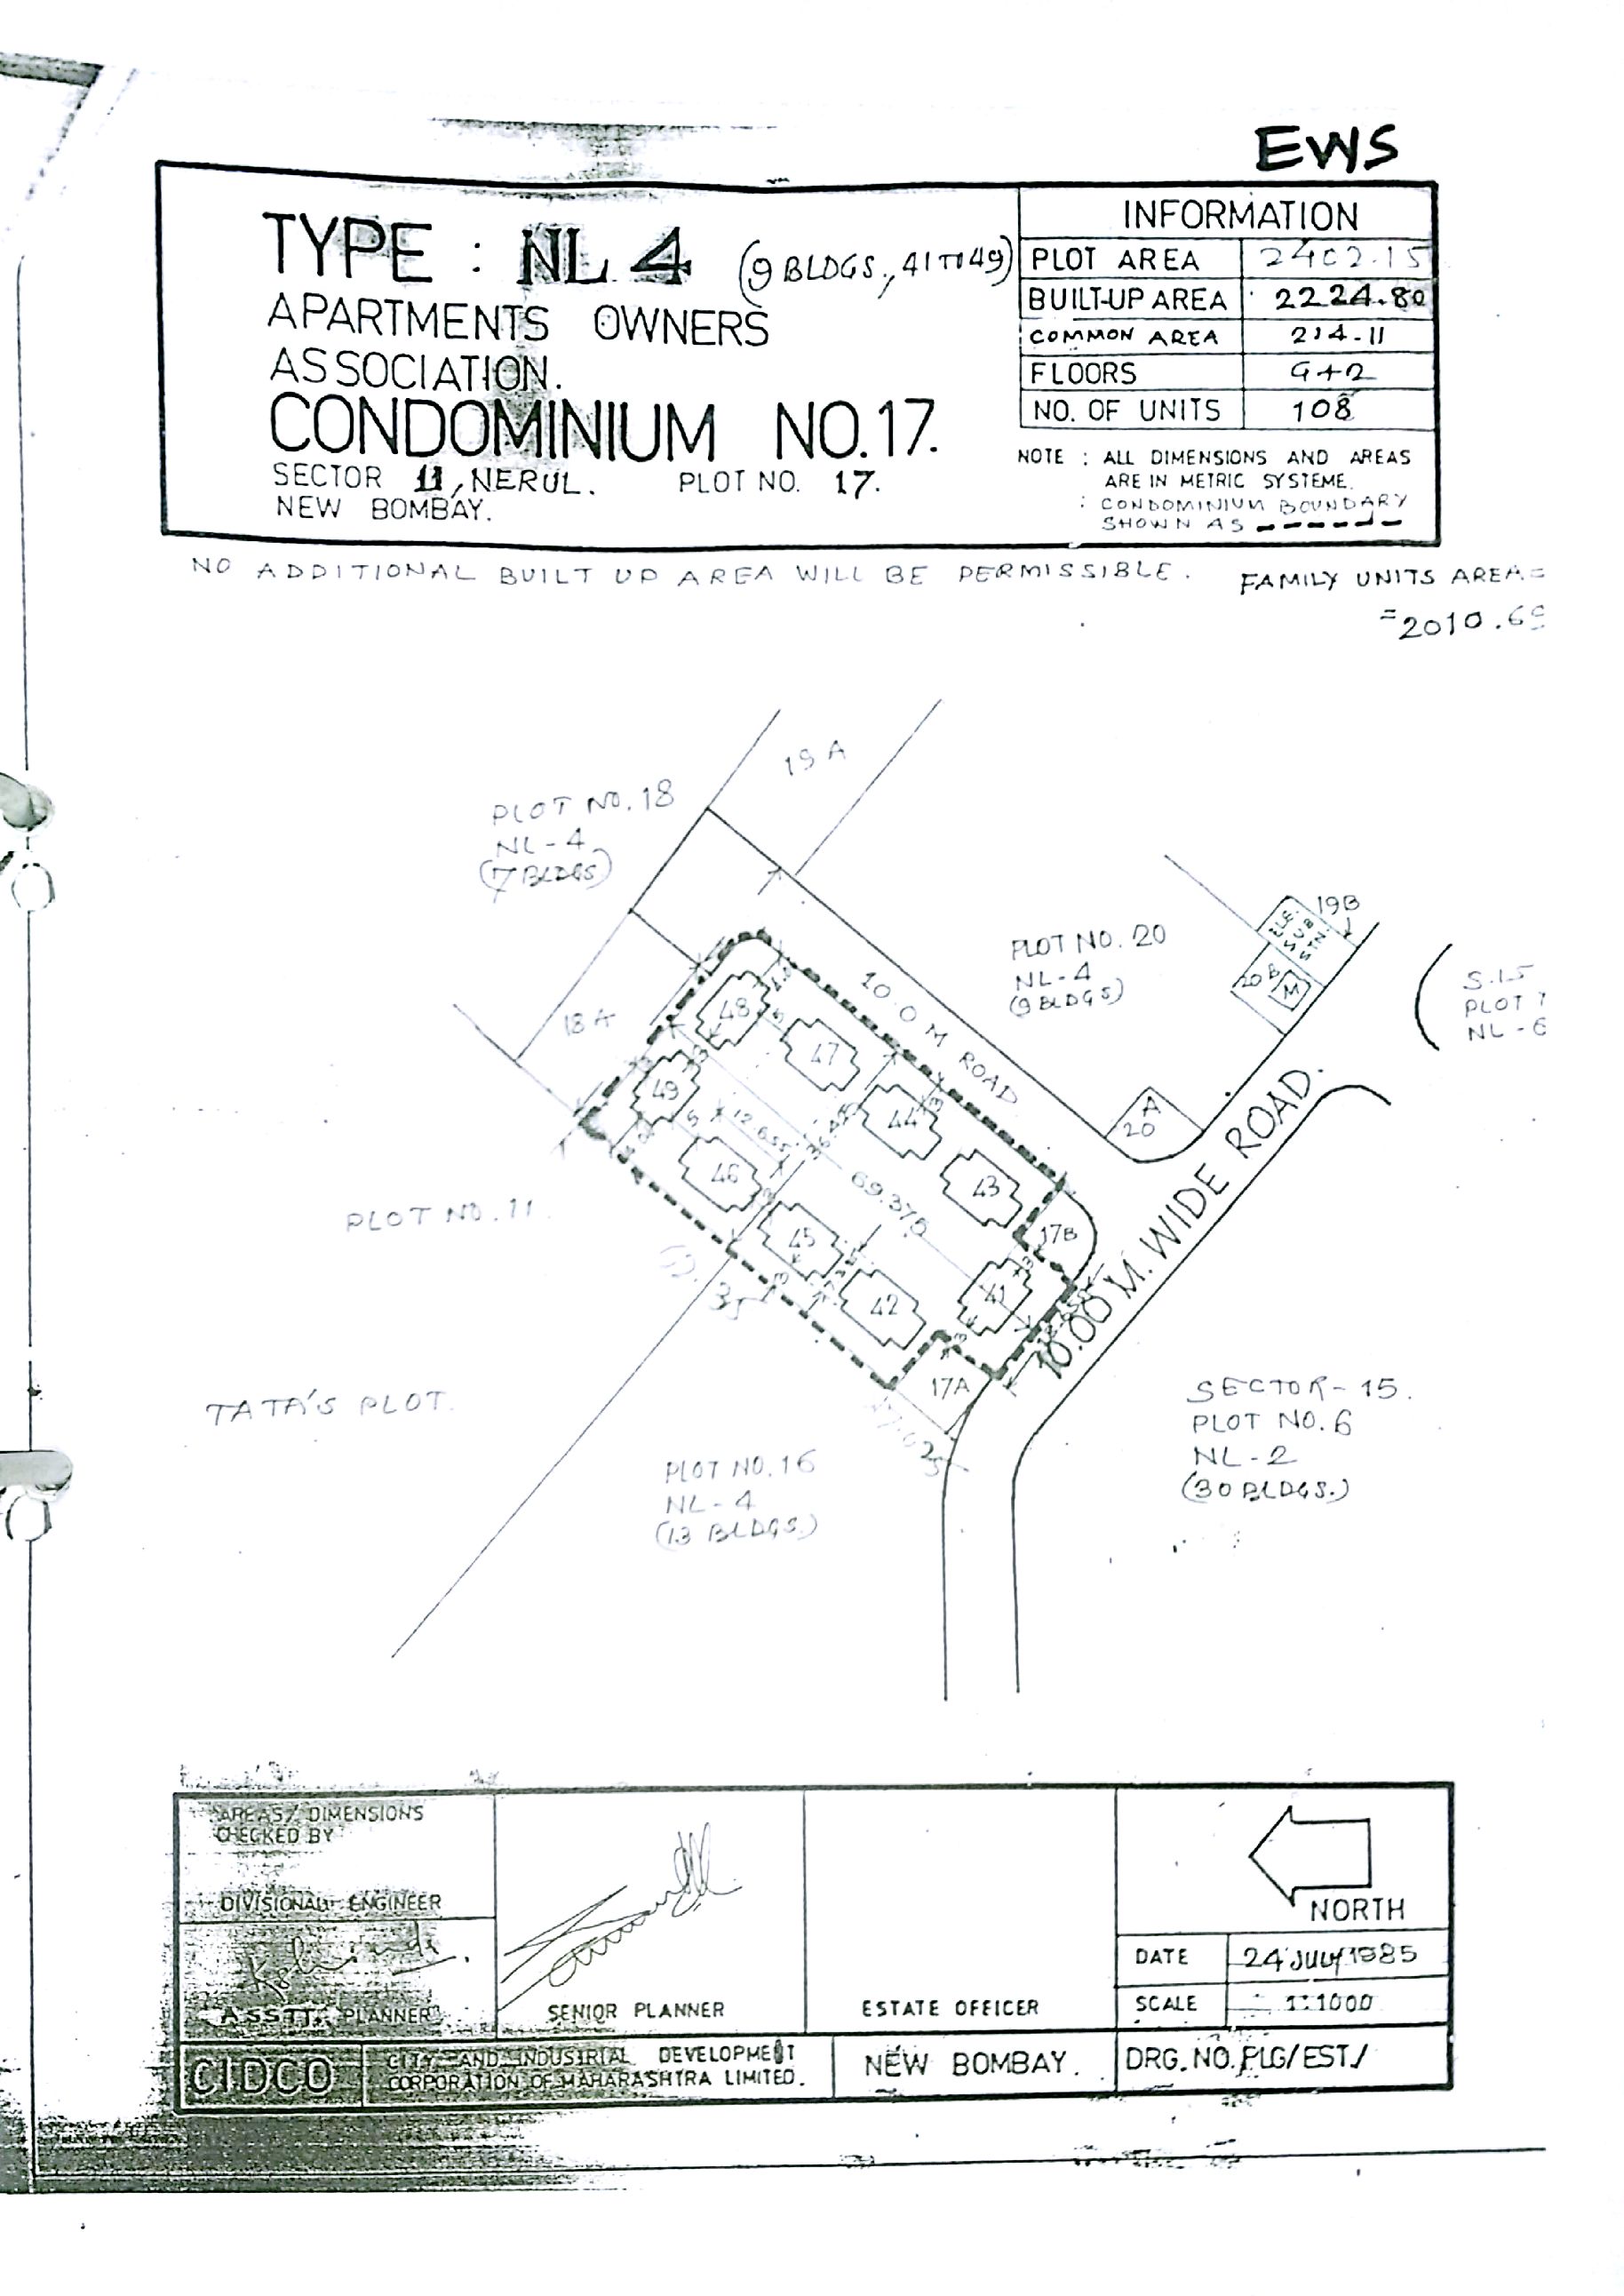 EWS
TYPE : NL 4 (9 BLDGS., 41 TO 49)
APARTMENTS OWNERS
ASSOCIATION.
CONDOMINIUM NO.17.
SECTOR 11, NERUL. PLOT NO. 17.
NEW BOMBAY.
INFORMATION
PLOT AREA 2402.15
BUILT-UP AREA 2224.80
COMMON AREA 214.11
FLOORS G+2
NO. OF UNITS 108
NOTE : ALL DIMENSIONS AND AREAS
ARE IN METRIC SYSTEME.
: CONDOMINIUM BOUNDARY
SHOWN AS
NO ADDITIONAL BUILT UP AREA WILL BE PERMISSIBLE. FAMILY UNITS AREA=
=2010.69
19A
PLOT NO. 18
NL-4
(7 BLDGS)
PLOT NO. 20
NL-4
(9 BLDGS)
19B
ELE. SUB STN.
20B
M
S.15
PLOT 7
NL-6
18A
10.0 M ROAD
A
20
48
47
49
44
46
43
45
42
41
5
5
3
3
3
12.655
36.475
69.375
17B
17A
10.00 M. WIDE ROAD.
PLOT NO. 11.
35
TATA'S PLOT.
PLOT NO. 16
NL-4
(13 BLDGS.)
SECTOR-15.
PLOT NO. 6
NL-2
(30 BLDGS.)
AREAS/DIMENSIONS
CHECKED BY
DIVISIONAL ENGINEER
ASSTT. PLANNER
SENIOR PLANNER
ESTATE OFFICER
NORTH
DATE 24 JULY 1985
SCALE 1:1000
CIDCO
CITY AND INDUSTRIAL DEVELOPMENT
CORPORATION OF MAHARASHTRA LIMITED.
NEW BOMBAY.
DRG. NO. PLG/EST/